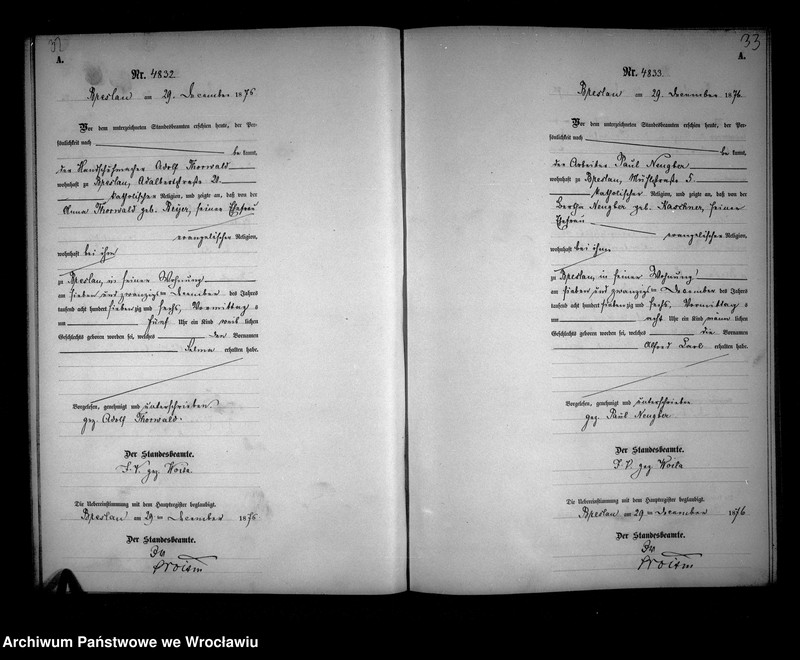 A.
Nr. 4832.
Breslau am 29. December 1876
Vor dem unterzeichneten Standesbeamten erschien heute, der Per-
sönlichkeit nach
be kannt,
der Handschuhmacher Adolf Thorwald
wohnhaft zu Breslau, Adalbertstraße
katholischer Religion, und zeigte an, daß von der
Anna Thorwald geb. Beyer, seiner Ehefrau
evangelischer Religion,
wohnhaft bei ihm
zu Breslau, in seiner Wohnung
am sieben und zwanzigsten December des Jahres
tausend acht hundert siebenzig und sechs, Vormittags
um fünf Uhr ein Kind weiblichen
Geschlechts geboren worden sei, welches den Vornamen
Selma erhalten habe.
Vorgelesen, genehmigt und unterschrieben.
gez. Adolf Thorwald.
Der Standesbeamte.
I. V. gez.
Die Uebereinstimmung mit dem Hauptregister beglaubigt.
Breslau am 29ten December 1876
Der Standesbeamte.
33
A.
Nr. 4833.
Breslau am 29. December 1876.
Vor dem unterzeichneten Standesbeamten erschien heute, der Per-
sönlichkeit nach
be kannt,
der Arbeiter Paul
wohnhaft zu Breslau, 5.
katholischer Religion, und zeigte an, daß von der
Bertha geb. seiner
Ehefrau
evangelischer Religion,
wohnhaft bei ihm
zu Breslau, in seiner Wohnung
am sieben und zwanzigsten December des Jahres
tausend acht hundert siebenzig und sechs, Vormittags
um acht Uhr ein Kind männlichen
Geschlechts geboren worden sei, welches die Vornamen
Alfred Carl erhalten habe.
Vorgelesen, genehmigt und unterschrieben
gez. Paul
Der Standesbeamte.
I. V. gez.
Die Uebereinstimmung mit dem Hauptregister beglaubigt.
Breslau am 29ten December 1876
Der Standesbeamte.
Archiwum Państwowe we Wrocławiu